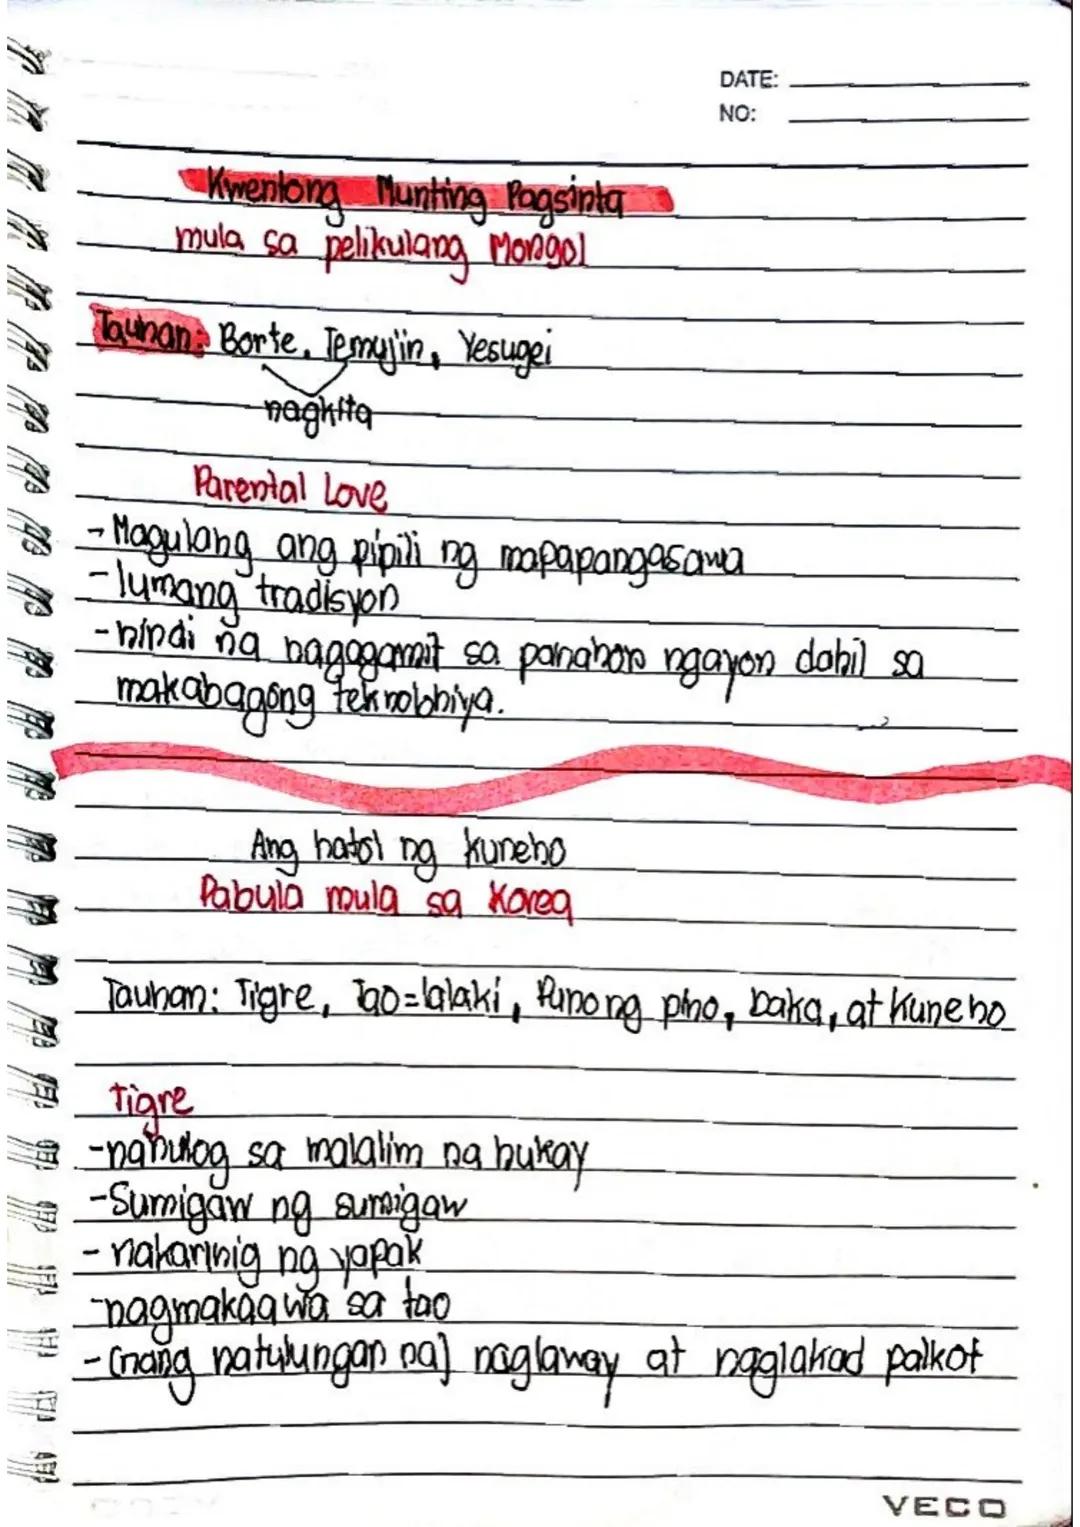 DATE:
NO:
Kwentong Munting Pagsinta
mula sa pelikulang Mongol
Tauhan: Borte, Temujin, Yesugei
nagkita
Parental Love
- Magulang ang pipili ng mapapangasawa
- lumang tradisyon
- hindi na nagagamit sa panahon ngayon dahil sa
makabagong teknolohiya.
Ang hatol ng kuneho
Pabula mula sa Korea
Tauhan: Tigre, Tao=lalaki, Punong pino, baka, at Kuneho
Tigre
- nahulog sa malalim na hukay
- Sumigaw ng sumigaw
- nakarinig ng yapak
- nagmakaawa sa tao
- (nang natulungan na) naglaway at naglakad paikot
VECO